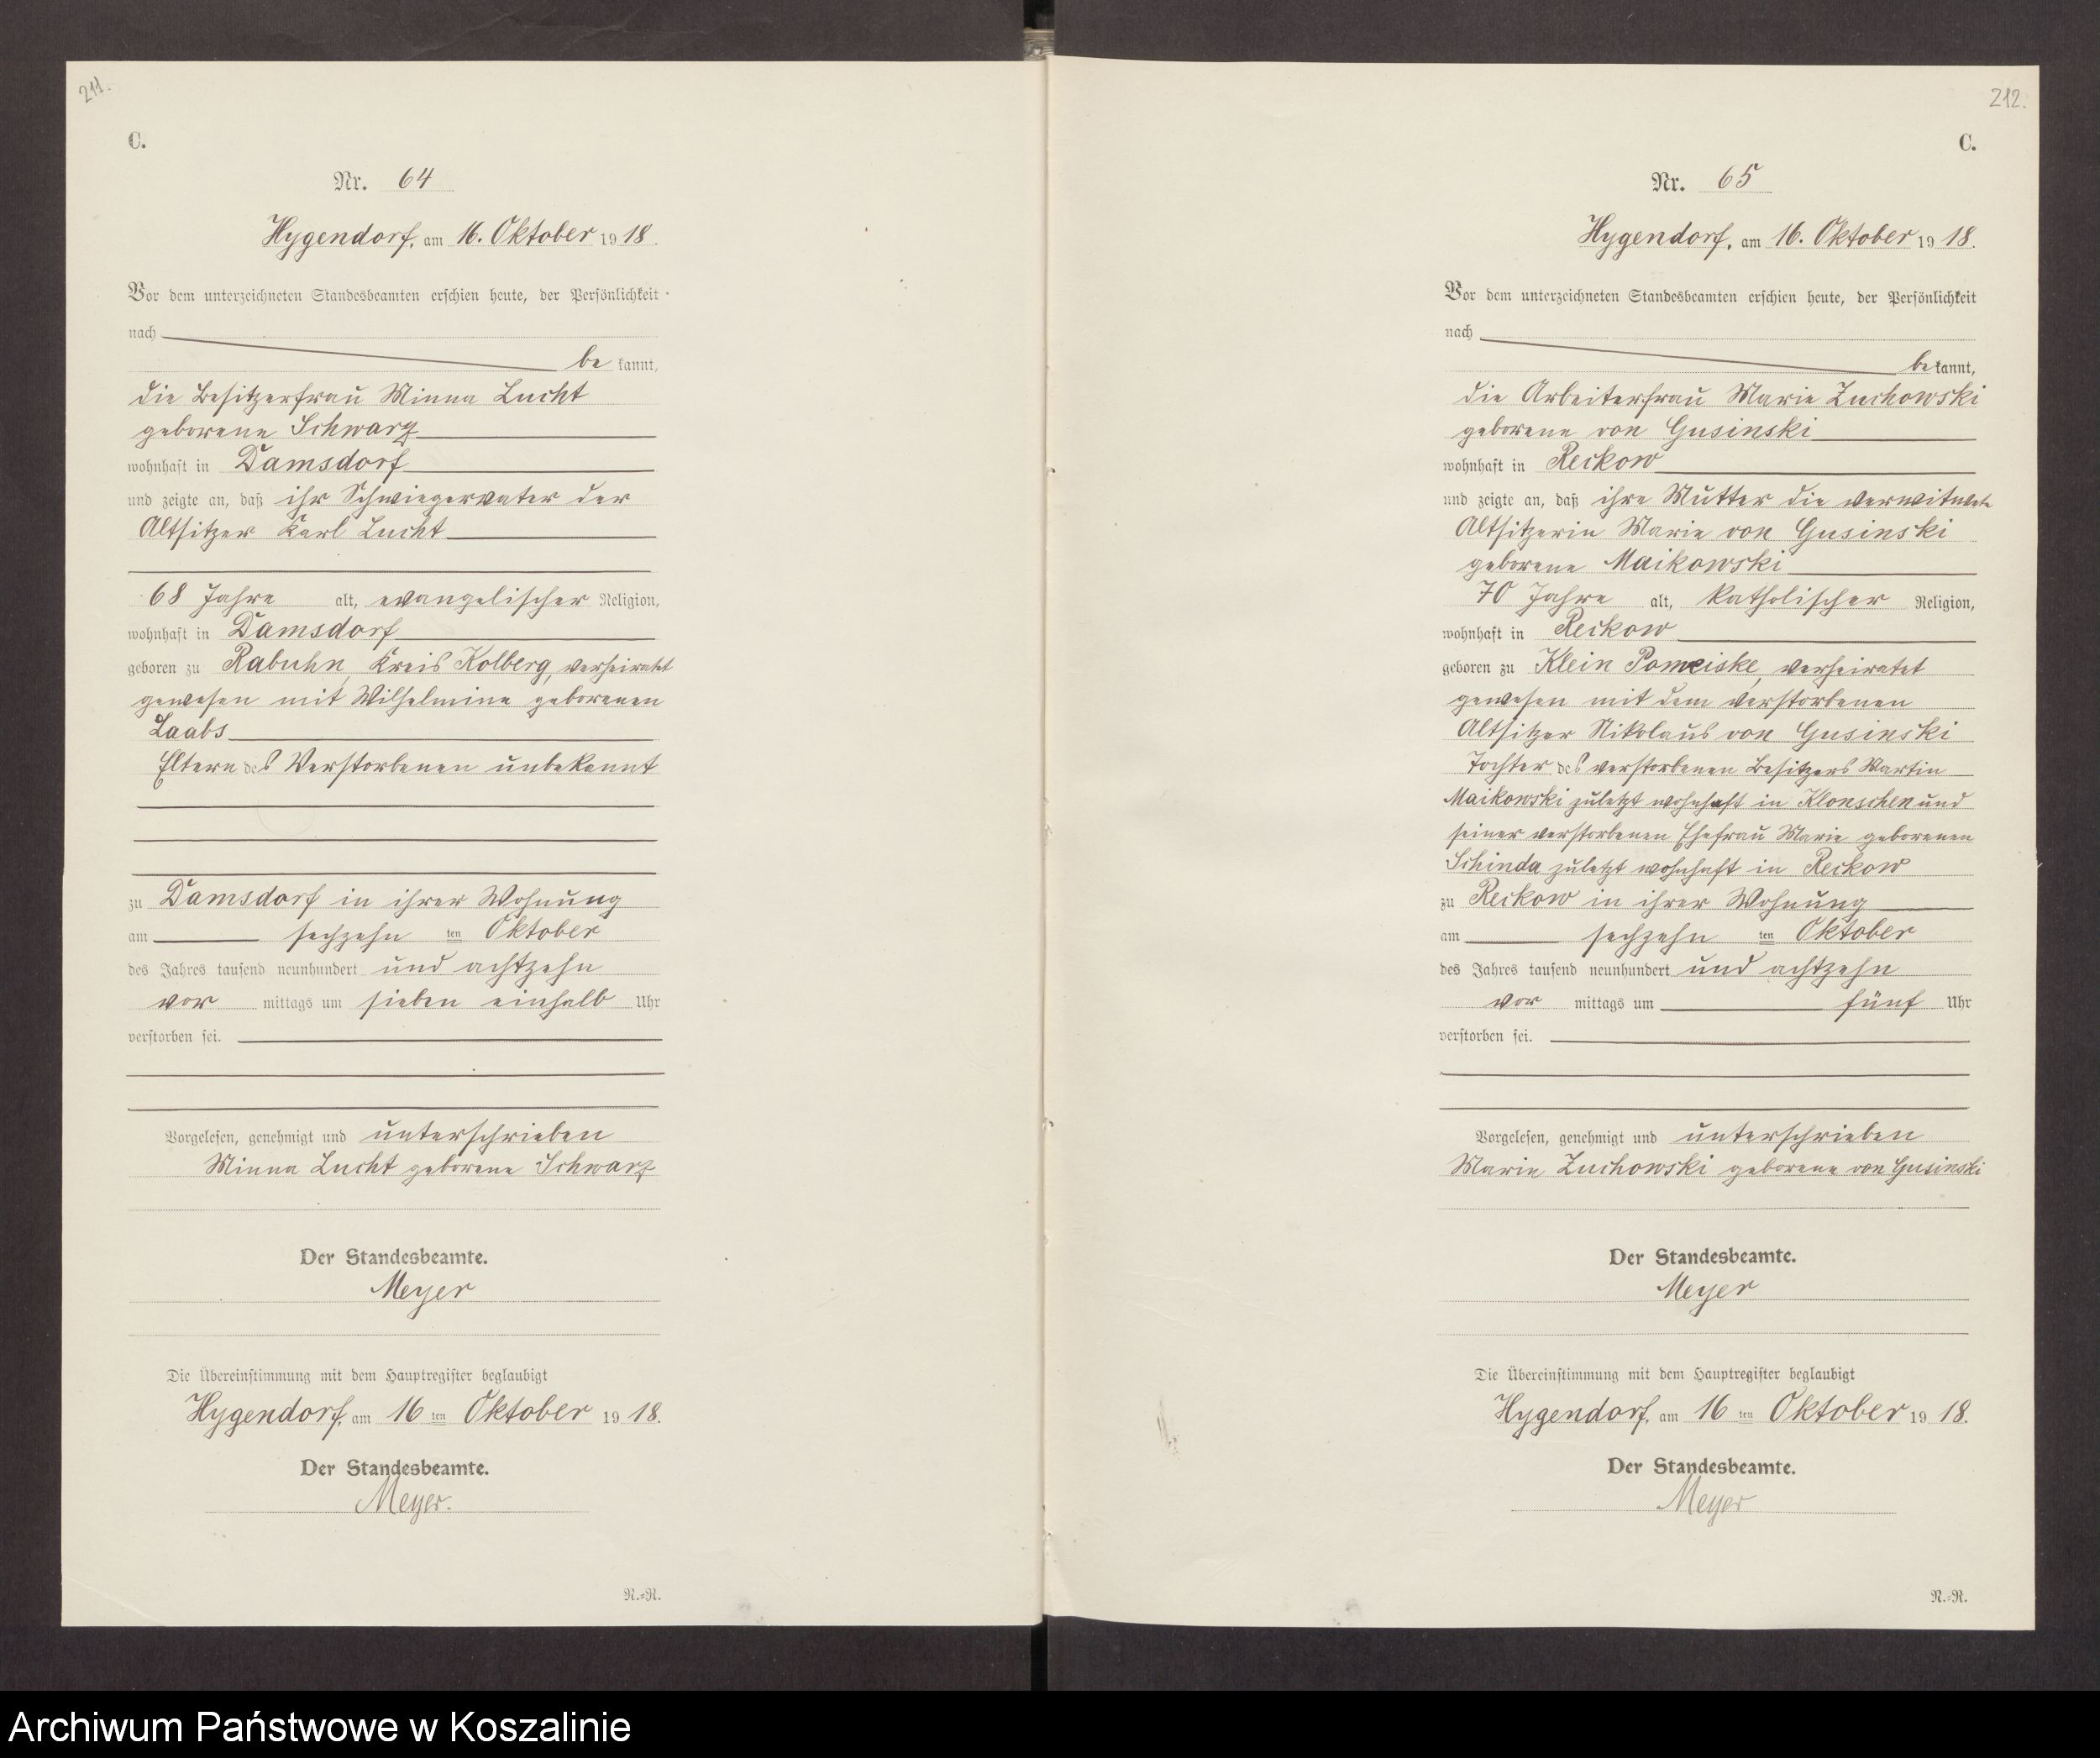 211.
C.
Nr. 64
Hygendorf, am 16. Oktober 1918.
Vor dem unterzeichneten Standesbeamten erschien heute, der Persönlichkeit
nach
be kannt,
die Besitzerfrau Minna Lucht
geborene Schwarz
wohnhaft in Damsdorf
und zeigte an, daß ihr Schwiegervater der
Altsitzer Karl Lucht
68 Jahre alt, evangelischer Religion,
wohnhaft in Damsdorf
geboren zu Rabuhn, Kreis Kolberg, verheiratet
gewesen mit Wilhelmine geborenen
Laabs
Eltern des Verstorbenen unbekannt
zu Damsdorf in ihrer Wohnung
am sechzehn ten Oktober
des Jahres tausend neunhundert und achtzehn
vor mittags um sieben einhalb Uhr
verstorben sei.
Vorgelesen, genehmigt und unterschrieben
Minna Lucht geborene Schwarz
Der Standesbeamte.
Meyer
Die Übereinstimmung mit dem Hauptregister beglaubigt
Hygendorf, am 16 ten Oktober 1918.
Der Standesbeamte.
Meyer.
N.=R.
212.
C.
Nr. 65
Hygendorf, am 16. Oktober 1918.
Vor dem unterzeichneten Standesbeamten erschien heute, der Persönlichkeit
nach
be kannt,
die Arbeiterfrau Marie Zuchowski
geborene von Gusinski
wohnhaft in Reckow
und zeigte an, daß ihre Mutter die verwitwete
Altsitzerin Marie von Gusinski
geborene Maikowski
70 Jahre alt, katholischer Religion,
wohnhaft in Reckow
geboren zu Klein Pomeiske, verheiratet
gewesen mit dem verstorbenen
Altsitzer Nikolaus von Gusinski
Tochter des verstorbenen Besitzers Martin
Maikowski zuletzt wohnhaft in Klonschen und
seiner verstorbenen Ehefrau Marie geborenen
Schinda zuletzt wohnhaft in Reckow
zu Reckow in ihrer Wohnung
am sechzehn ten Oktober
des Jahres tausend neunhundert und achtzehn
vor mittags um fünf Uhr
verstorben sei.
Vorgelesen, genehmigt und unterschrieben
Marie Zuchowski geborene von Gusinski
Der Standesbeamte.
Meyer
Die Übereinstimmung mit dem Hauptregister beglaubigt
Hygendorf, am 16 ten Oktober 1918.
Der Standesbeamte.
Meyer
N.=R.
Archiwum Państwowe w Koszalinie